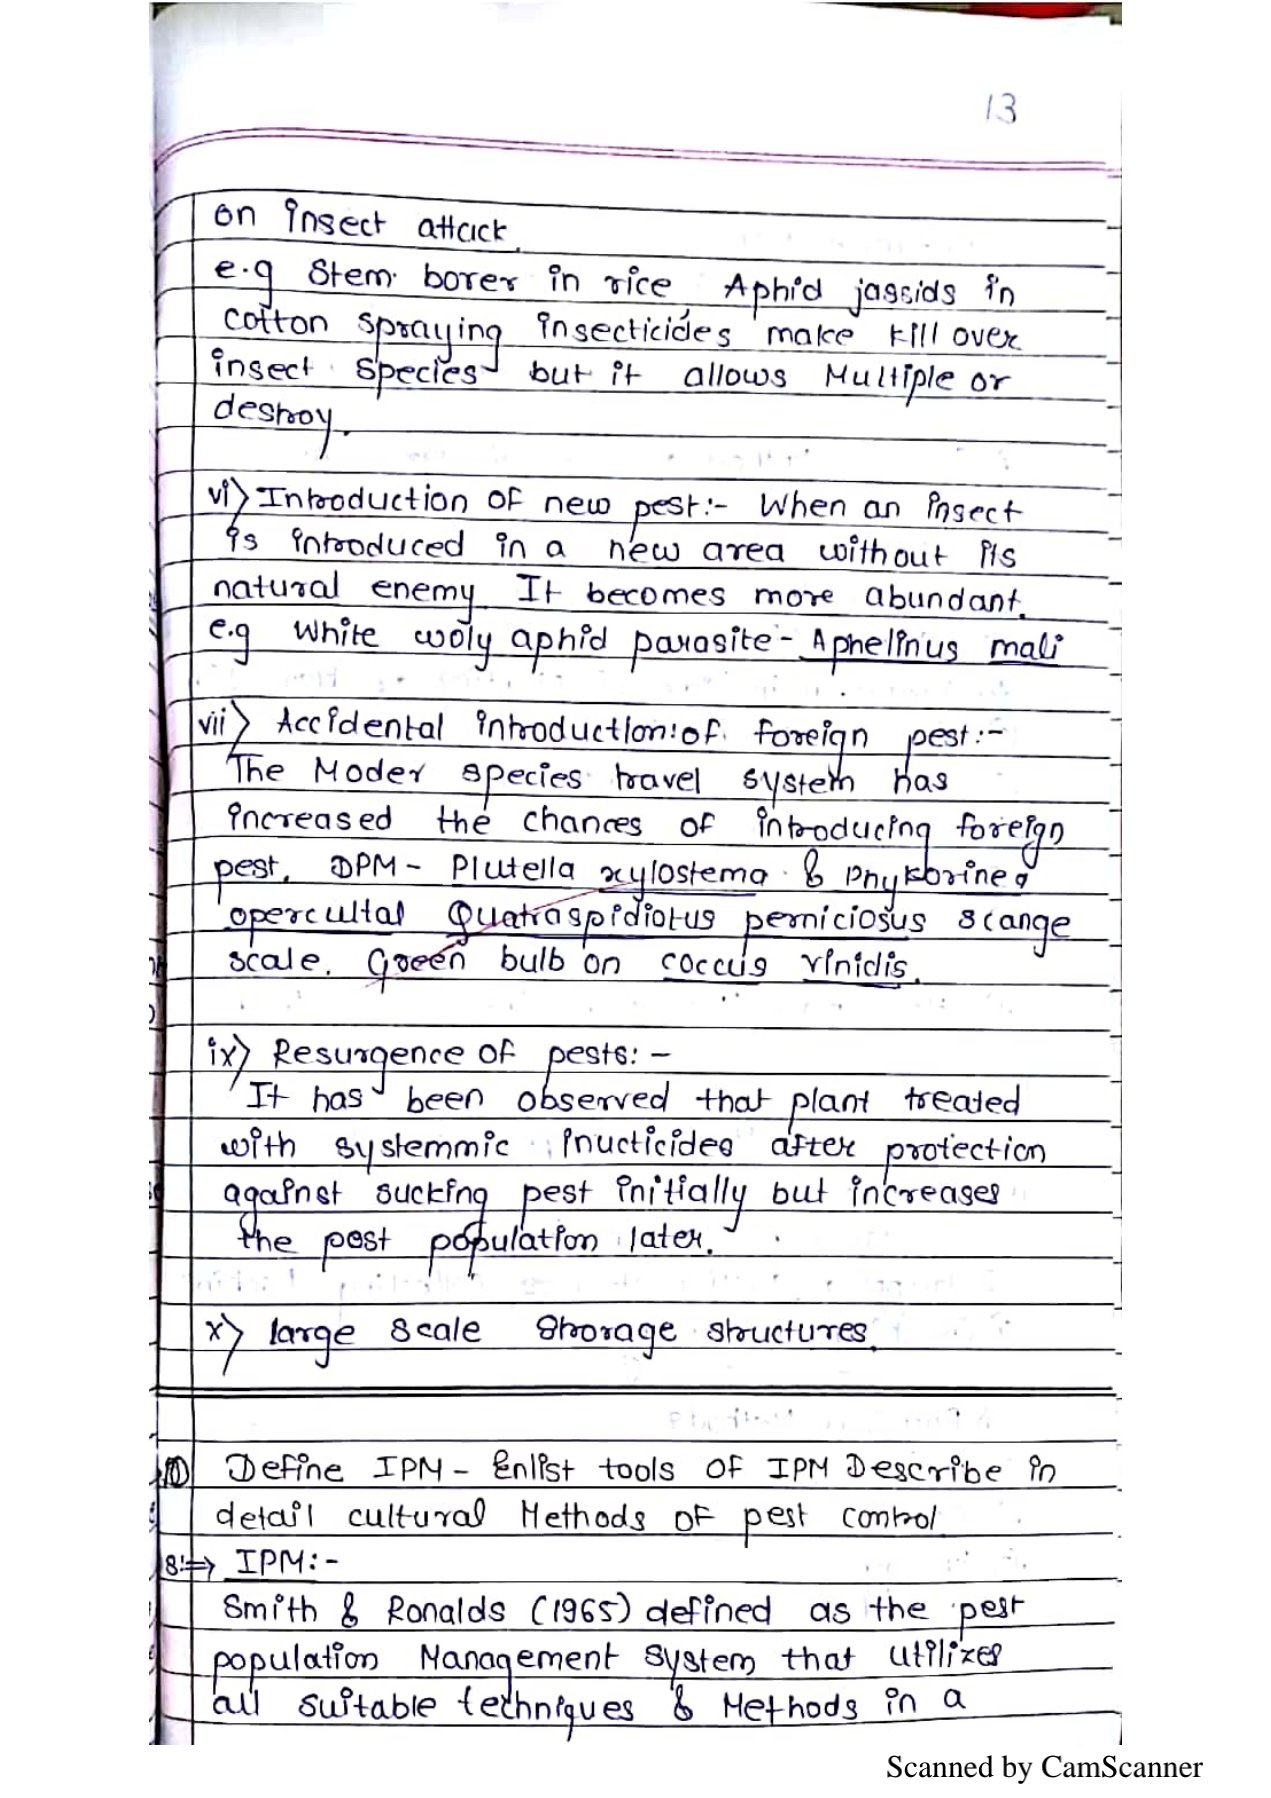 13
on insect attack.
e.g Stem borer in rice Aphid jassids in
cotton spraying insecticides make kill over
insect species but it allows Multiple or
destroy.
vi) Introduction of new pest:- When an insect
is introduced in a new area without its
natural enemy It becomes more abundant.
e.g White wooly aphid parasite - Aphelinus mali
vii) Accidental introduction of foreign pest:-
The Moder species travel system has
increased the chances of introducing foreign
pest. DPM - Plutella xylostema &
opercultal Quatraspidiotus perniciosus scange
scale. Green bulb on coccus vinidis.
ix) Resurgence of pests:-
It has been observed that plant treated
with systemmic inucticides after protection
against sucking pest initially but increases
the pest population later.
x) large scale Storage structures.
10) Define IPM - Enlist tools of IPM Describe in
detail cultural Methods of pest control
8:⇒ IPM:-
Smith & Ronalds (1965) defined as the pest
population Management system that utilizes
all suitable techniques & Methods in a
Scanned by CamScanner